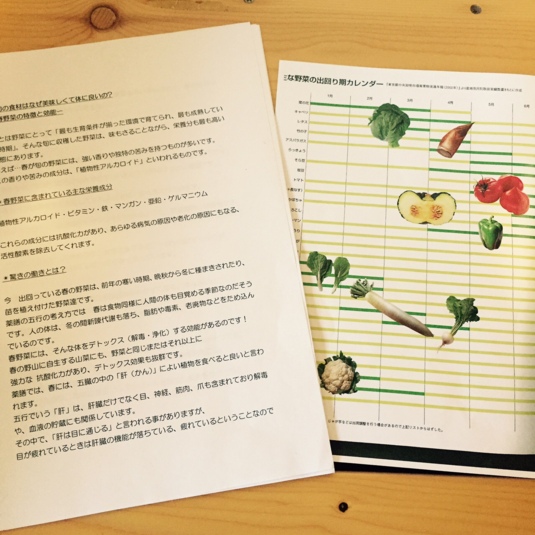 の食材はなぜ美味しくて体に良いのか?
野菜の特徴と効能ー
とは野菜にとって「最も生育条件が揃った環境で育てられ、最も成熟してい
時期」そんな旬に収穫した野菜は、味もさることながら、栄養分も最も高い
態にあります。
えば…春が旬の野菜には、強い香りや独特の苦みを持つものが多いです。
の香りや苦みの成分は、「植物性アルカロイド」といわれるものです。
春野菜に含まれている主な栄養成分
植物性アルカロイド・ビタミン・鉄・マンガン・亜鉛・ゲルマニウム
これらの成分には抗酸化力があり、あらゆる病気の原因や老化の原因にもなる、
活性酸素を除去してくれます。
*驚きの働きとは?
今 出回っている春の野菜は、前年の寒い時期、晩秋から冬に種まきされたり、
苗を植え付けた野菜達です。
薬膳の五行の考え方では 春は食物同様に人間の体も目覚める季節なのだそう
です。人の体は、冬の間新陳代謝も落ち、脂肪や毒素、老廃物などをため込ん
でいるのです。
春野菜には、そんな体をデトックス(解毒・浄化)する効能があるのです!
春の野山に自生する山菜にも、野菜と同じまたはそれ以上に
強力な 抗酸化力があり、デトックス効果も抜群です。
薬膳では、春には、五臓の中の「肝(かん)」によい植物を食べると良いと言わ
れます。
五行でいう「肝」は、肝臓だけでなく目、神経、筋肉、爪も含まれており解毒
や、血液の貯蔵にも関係しています。
その中で、「肝は目に通じる」と言われる事がありますが、
目が疲れているときは肝臓の機能が落ちている、疲れているということなので
な野菜の出回り期カレンダー
1月 2月 3月 4月 5月 6月
キャベツ
レタス
トマト